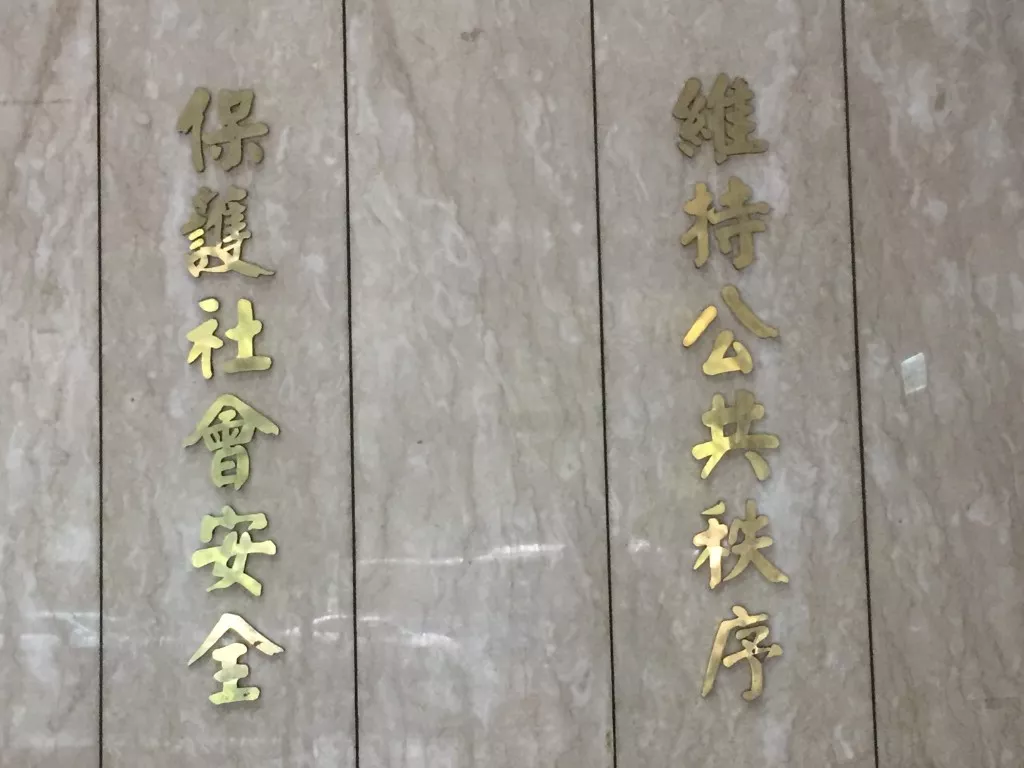 維持公共秩序
保護社會安全